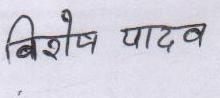 बिशेष यादव